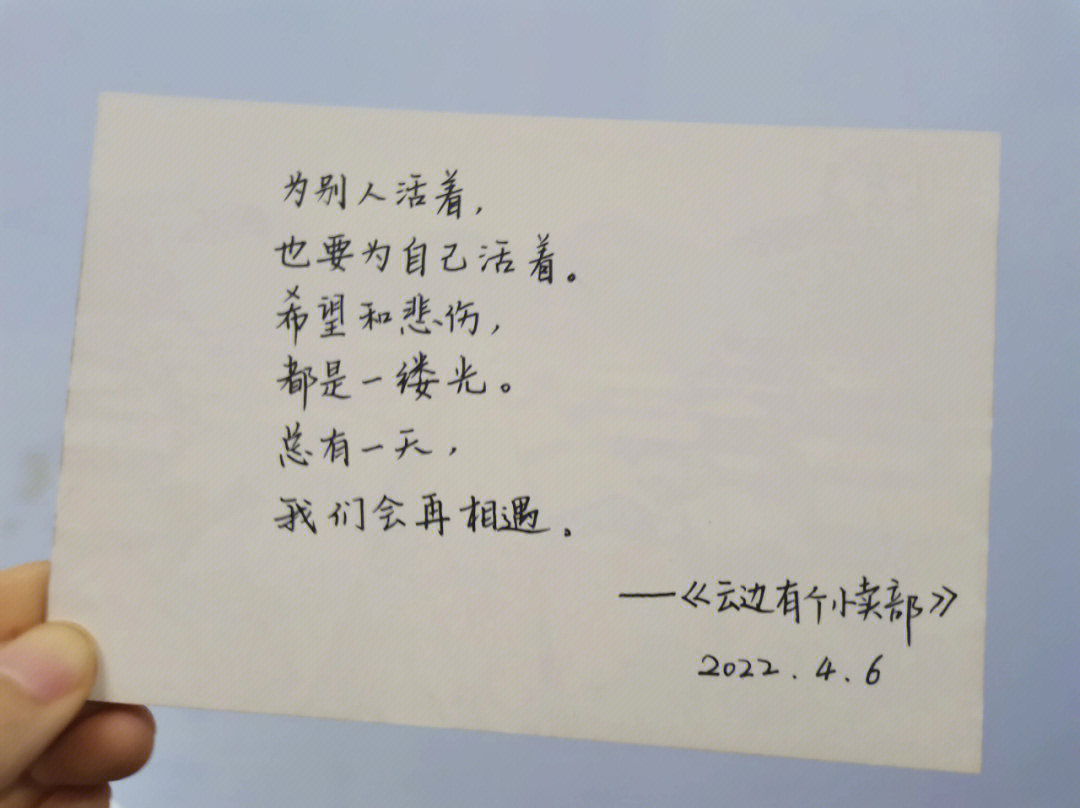 为别人活着,
也要为自己活着。
希望和悲伤,
都是一缕光。
总有一天,
我们会再相遇。
——《云边有个小卖部》
2022.4.6